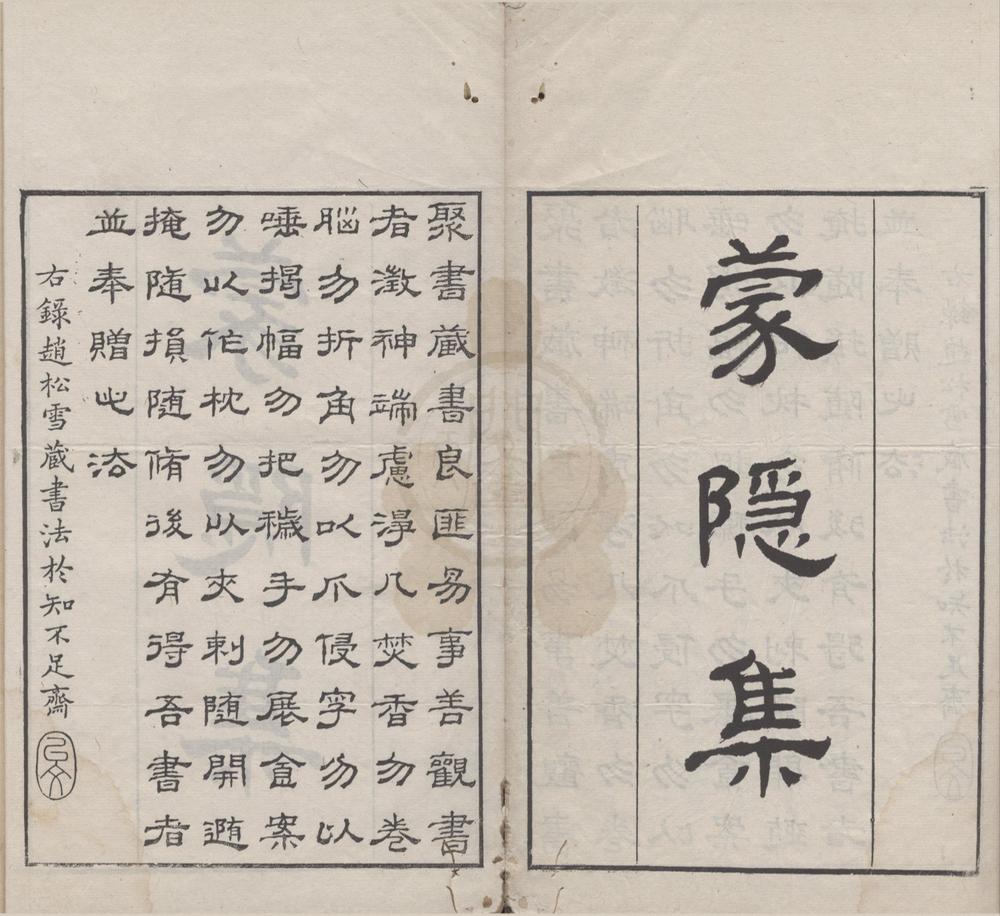 蒙隐集
聚書藏書良匪易事善觀書
者澂神端慮淨几焚香勿卷
腦勿折角勿以爪侵字勿以
唾揭幅勿把穢手勿展食案
勿以作枕勿以夾刺随開随
掩随損随脩後有得吾書者
並奉贈此法
右錄趙松雪藏書法於知不足齋
㠯文